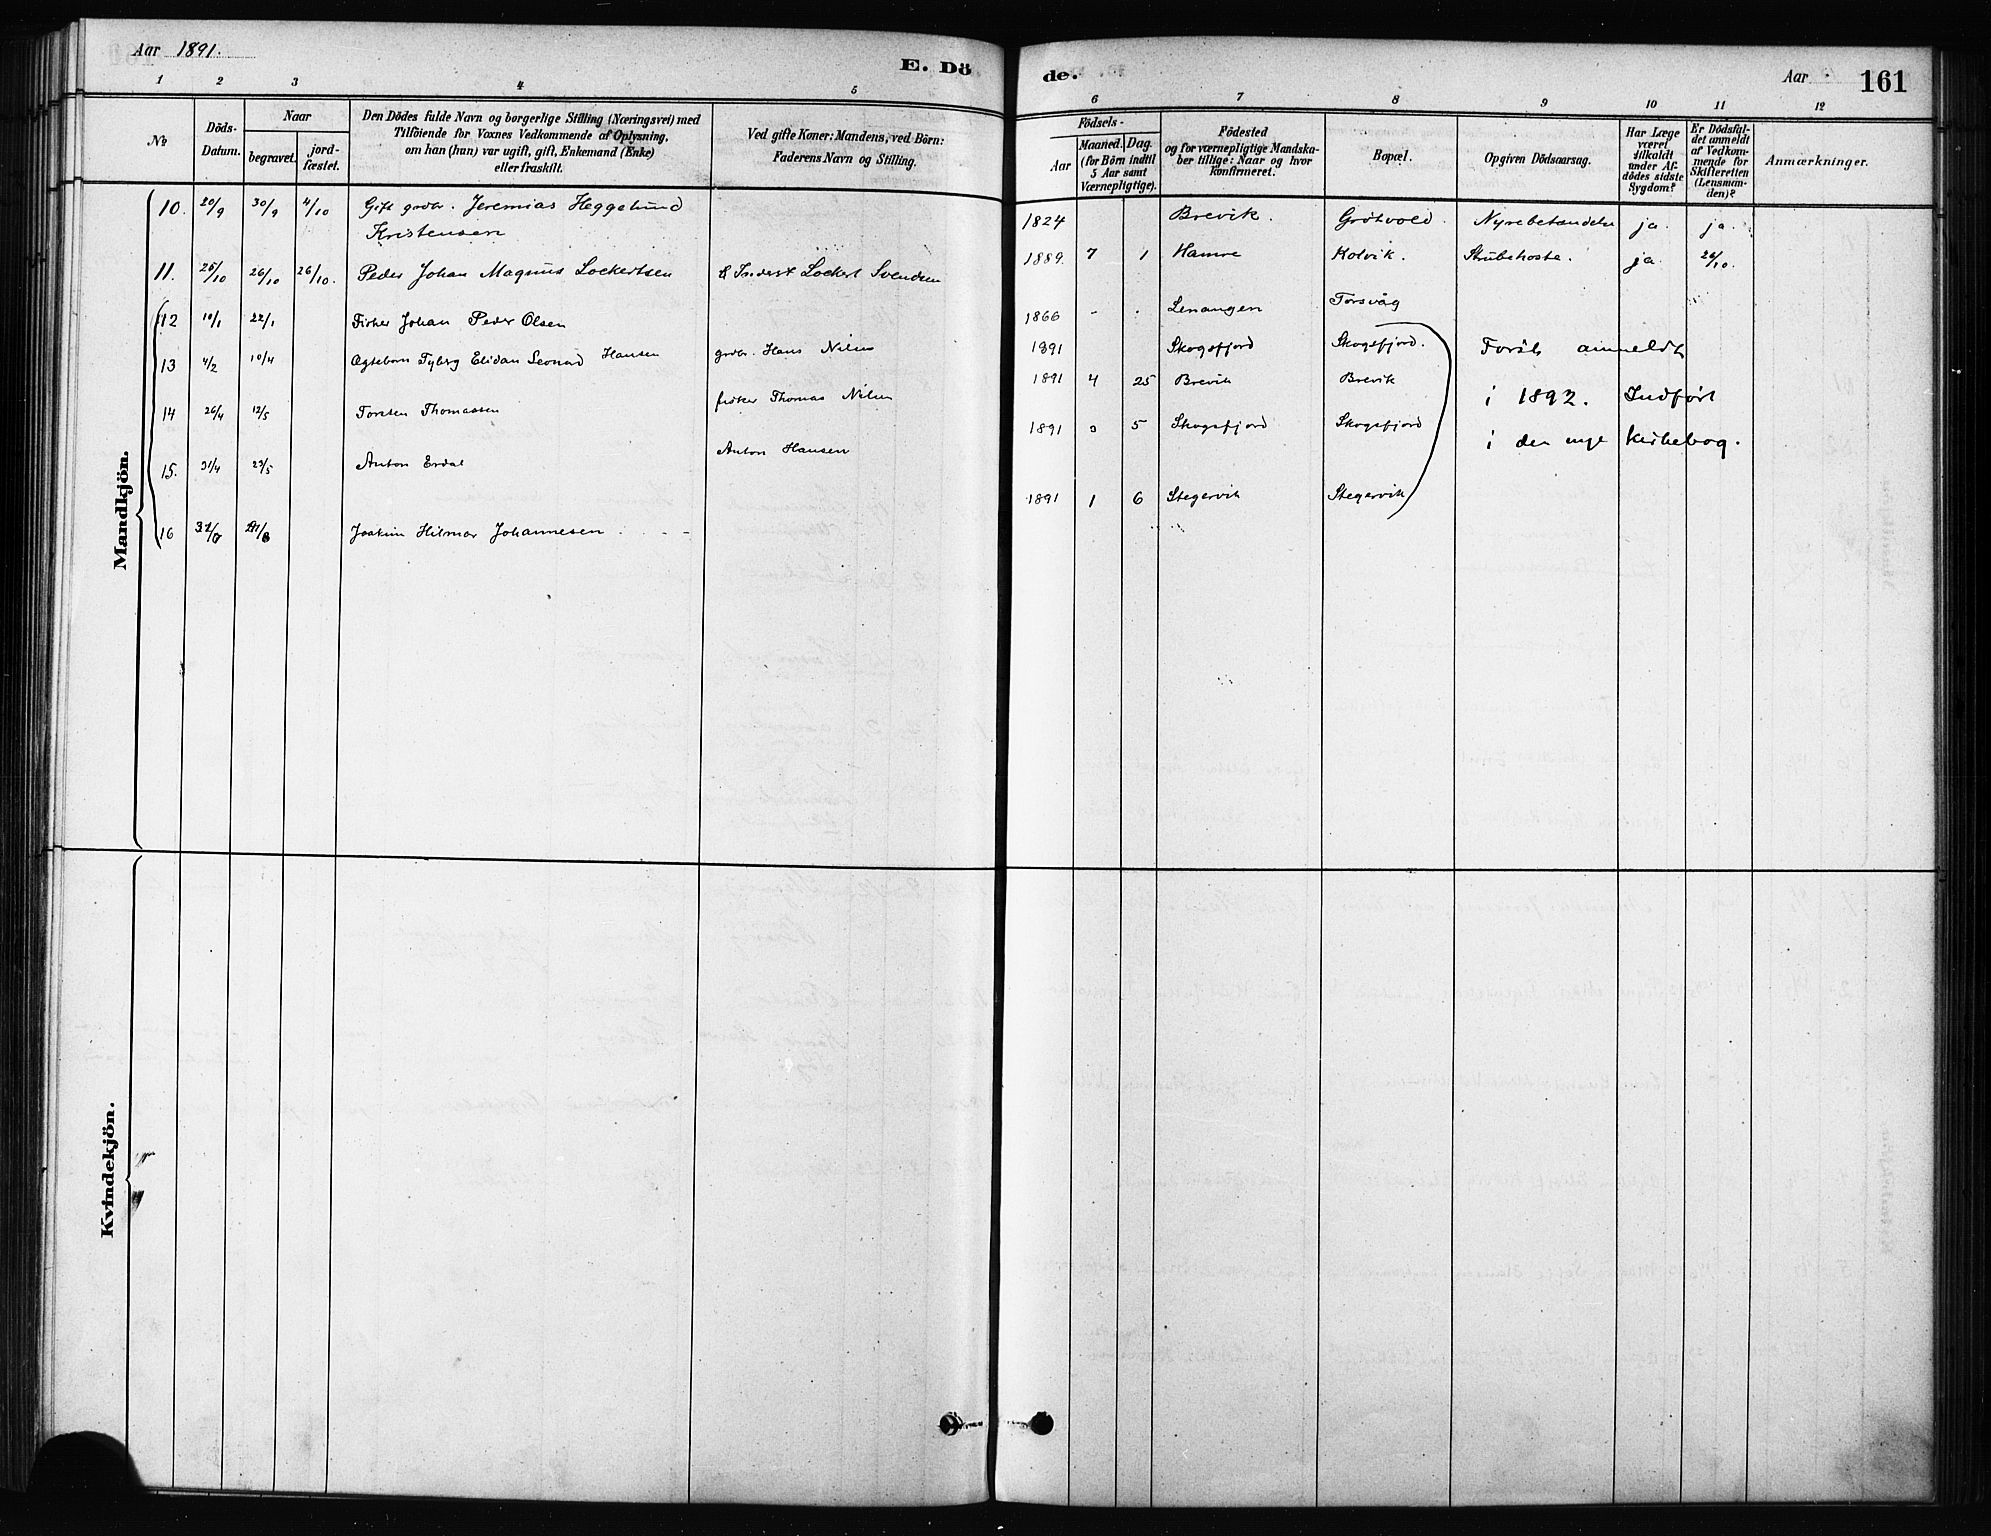 Aar 1891.
E. Dö
de.
Aar
161
1 2 3 4 5
6 7 8 9 10 11 12
No
Döds-Datum.
Naar
begravet.
jord-fæstet.
Den Dödes fulde Navn og borgerlige Stilling (Næringsvei) med
Tilföiende for Voxnes Vedkommende af Oplysning,
om han (hun) var ugift, gift, Enkemand (Enke)
eller fraskilt.
Ved gifte Koner: Mandens, ved Börn:
Faderens Navn og Stilling.
Födsels-
Aar
Maaned. Dag.
(for Börn indtil
5 Aar samt
Værnepligtige).
Födested
og for værnepligtige Mandska-
ber tillige: Naar og hvor
konfirmeret.
Bopæl.
Opgiven Dödsaarsag.
Har Læge
været
tilkaldt
under Af-
dödes sidste
Sygdom?
Er Dödsfal-
det anmeldt
af Vedkom-
mende for
Skifteretten
(Lensman-
den)?
Anmærkninger.
Mandkjön.
10. 20/9 30/9 4/10 Gift grdbr. Jeremias Heggelund
Kristensen
1824 Brevik. Grötvold. Nyrebetændelse ja. ja.
11. 25/10 26/10 26/10. Peder Johan Magnus Lockertsen Lockert Svendsen
1889. 7 1 Hamre Kolvik. Strubehoste. ja. 26/10.
12 10/1 22/1 Fisker Johan Peder Olsen
1866 - . Lenangen Torsvåg
13 4/2 10/4 Ægtebarn Tyberg Elidan Leonard Hansen grdbr. Hans Nilsen
1891 Skogsfjord Skogsfjord.
14 26/4 12/5 Torsten Thomassen fisker Thomas Nilsen
1891 4 25 Brevik Brevik
15. 31/4 23/5 Anton Erdal Anton Hansen
1891 3 5 Skogsfjord Skogsfjord
16 Joakim Hilmar Johannesen . - -
1891 1 6 Stegervik Stegervik
Forst anmeldt
i 1892. Indført
i den nye kirkebog.
Kvindekjön.